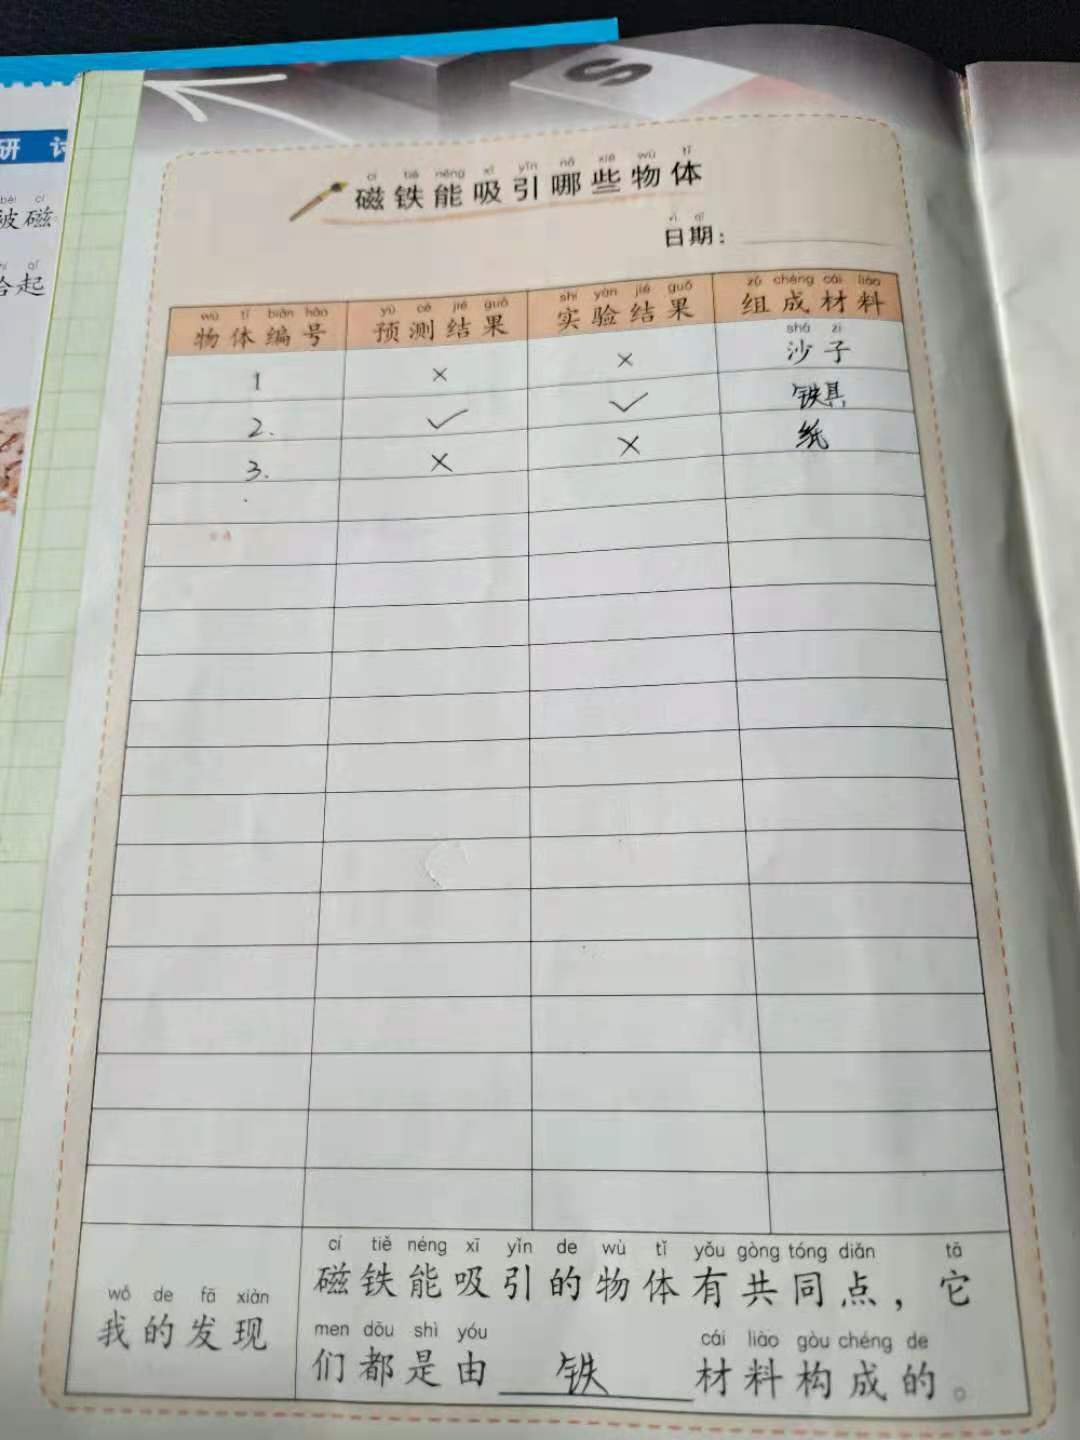 S
研 讨
bèi cí
被磁
qǐ
起
cí tiě néng xī yǐn nǎ xiē wù tǐ
磁铁能吸引哪些物体
rì qī
日期：
wù tǐ biān hào yù cè jié guǒ shí yàn jié guǒ zǔ chéng cái liào
物体编号 预测结果 实验结果 组成材料
shā zi
1 × × 沙子
2. ✓ ✓ 铁具
3. × × 纸
cí tiě néng xī yǐn de wù tǐ yǒu gòng tóng diǎn tā
磁铁能吸引的物体有共同点，它
wǒ de fā xiàn
我的发现
men dōu shì yóu cái liào gòu chéng de
们都是由 铁 材料构成的。